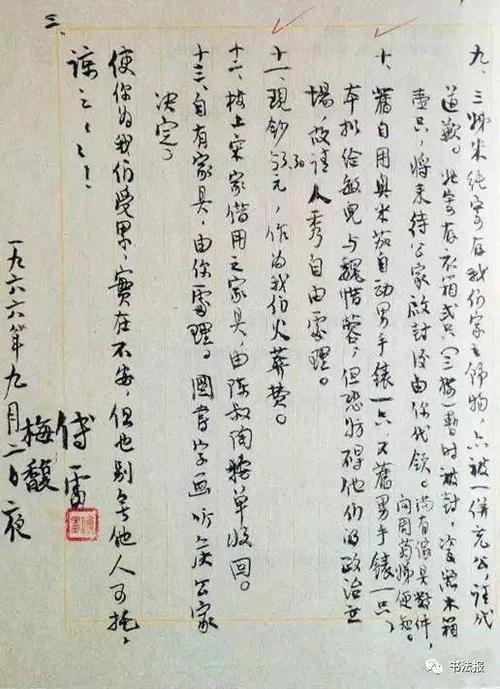 三、
九、三姊朱纯寄存我们家之饰物，亦被一併充公，请代
道歉。她寄存衣箱弍只（三楼）暂时被封，瓷器木箱
壹只，将来待公家啟封后由你代领。尚有傢具数件，
问周菊娣便知。
十、舊自用奥米茄自动男手錶一只，又舊男手錶一只，
本拟给敏儿与魏惜蓉，但恐妨碍他们的政治立
場，故请人秀自由處理。
十一、现鈔53.30元，作为我们火葬费。
十二、楼上宋家借用之家具，由陈叔陶按单收回。
十三、自有家具，由你處理。圖書字画听候公家
决定。
使你为我们受累，實在不安，但也别无他人可托，
谅之！谅之！
傅雷
梅馥
一九六六年九月二日夜
书法报